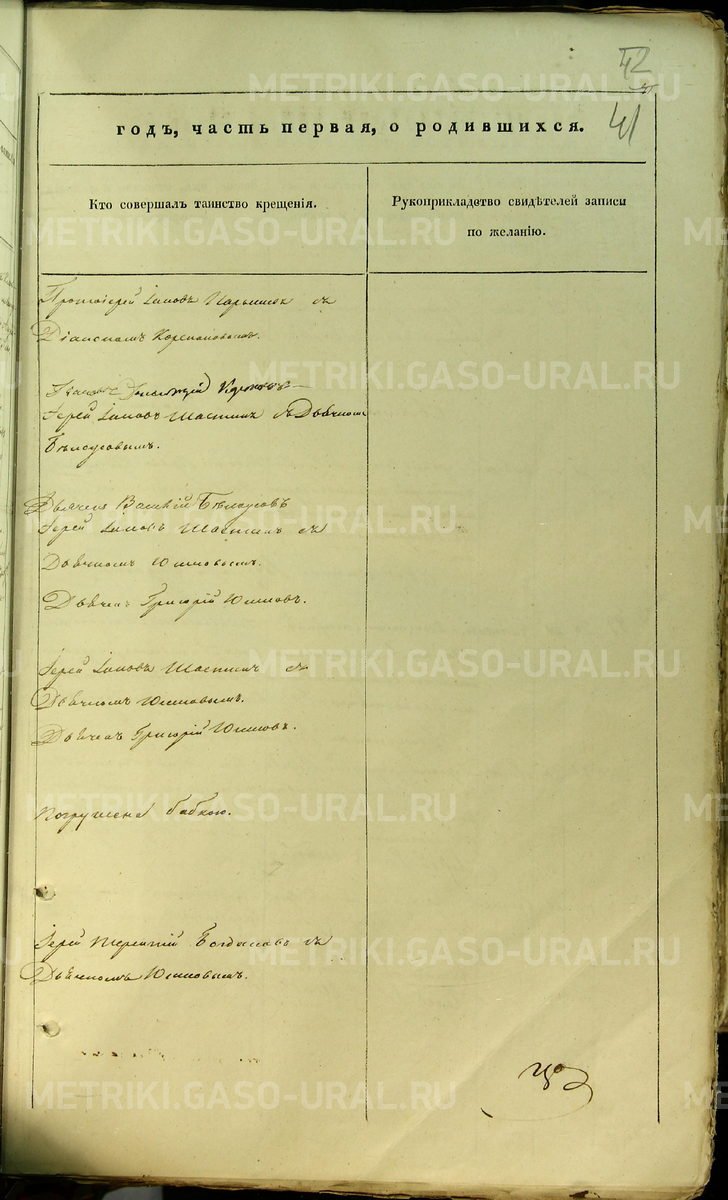 42
41
годъ, часть первая, о родившихся.
Кто совершалъ таинство крещенія.
Рукоприкладство свидѣтелей записи
по желанію.
Протоіерей Іаковъ съ
Діакономъ
Іерей Іаковъ Шастинъ съ Дьячкомъ
Бѣлоусовымъ.
Дьячекъ Василій Бѣлоусовъ
Іерей Іаковъ Шастинъ съ
Дьячкомъ Юшковымъ.
Дьячекъ Григорій Юшковъ.
Іерей Іаковъ Шастинъ съ
Дьячкомъ Юшковымъ.
Дьячекъ Григорій Юшковъ.
Погружена бабкою.
Іерей Терентій Богдановъ съ
Дьячкомъ Юшковымъ.
METRIKI.GASO-URAL.RU